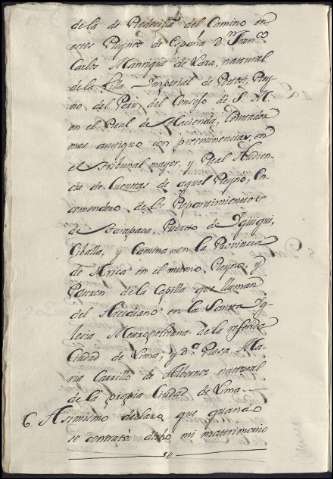 de la de Probeedor del Comino en
estos Reynos de España Dn Franco
Carlos Manrique de Lara, natural
de la Villa Imperial de Potosi, Rey
no del Peru del Consejo de S. M.
en el Real de Hacienda, Contador
mas antiguo con preeminencias, en
el Tribunal mayor, y Real Audien
cia de Cuentas de aquel Reyno, En
comendero de los Repartimientos
de Tarapaca, Puerto de Yquiqui,
y Camina, en la Provincia
de Arica en el mismo Reyno, y
Patron de la Capilla que llaman
del en la Santa Ygle
sia Metropolitana de la referida
Ciudad de Lima, y Da Rosa Ma
Carrillo de Albornoz natural
de la propia Ciudad de Lima
6. Asimismo declaro que quando
se contrató dicho mi matrimonio